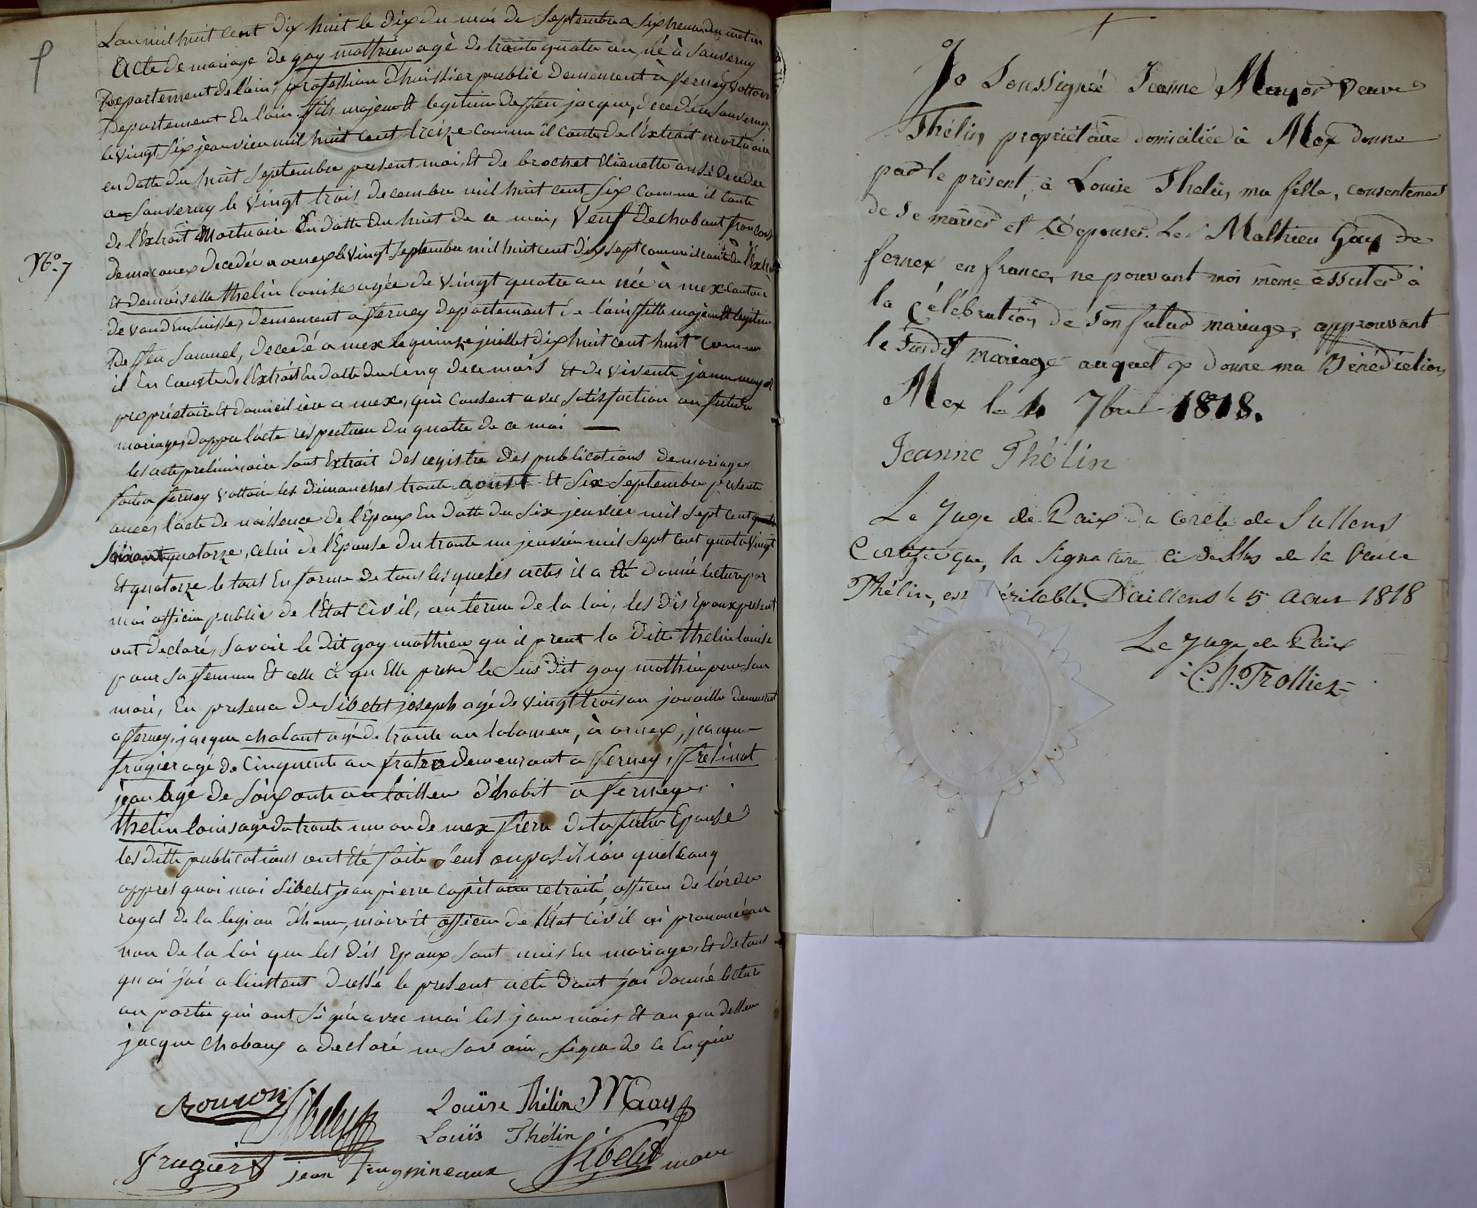 L'an mil huit cent dix huit le dix du mois de Septembre a Six heures du matin
Acte de mariage de gay mathieu agé de trante quatre an, né à Sauverny
Departement de l'ain, profession d'huissier public demeurent à ferney voltaire
Departement de l'ain fils majeur et legitime de feu jacque, decedé a Sauverny
le vingt Six janvier mil huit cent treize comme il conte de l'extrait mortuaire
en datte du huit Septembre present mois, Et de brochet Etienette aussi decedée
a Sauverny le vingt trois decembre mil huit cent Six comme il conte
de l'Extrait Mortuaire En datte du huit de ce mois, Veuf De chabaut
decedée a ornex le vingt Septembre mil huit cent dix sept comme il conte de l'Extrait
No. 7
Et demoiselle thelin louise agée de vingt quatre an née à mex canton
de vaud en Suisse, demeurent a fernay departement de l'ain fille majeure et legitime
De feu Samuel, decedé a mex le quinze juillet dix huit cent huit comme
il En conste de l'Extrait En datte du cinq de ce mois Et de vivente janne mayor
propriétaire Et domiciliée a mex, qui consent avec Satisfaction au futur
mariage d'appre l'acte respectueu du quatre de ce mois
les acte preliminaire Sont Extrait des registre des publications de mariage
faite a fernay voltaire les dimanches trante aoust Et Six Septembre presente
année, l'acte de naissance de l'Epoux En datte du Six janvier mil Sept cent
Soixant quatorze, celui de l'Epouse du trante un janvier mil Sept cent quatre vingt
Et quatorze le tout En forme de tous lesquels actes il a été donné lecture par
moi officier public de l'Etat Civil, au terme de la loi, les dis Epoux present
ont declaré, Savoir le dit gay mathieu qu il prent la ditte thelin louise
pour Sa femme Et celle ci qu Elle prend le Sus dit gay mathieu pour Son
mari, En presence De Sibelet joseph agé de vingt trois an jouaille demeurent
a fernay, jacque chabaut agé de trante an laboureur, à ornex, jacque
frugier agé de Cinquente an fratre demeurant a fernay,
jean agé de Soixante an tailleur d'habit a fernay
thelin louis agé de trante un an de mex frere de la future Epouse
les ditte publications ont Eté faite Sens oupposition quelconq
appres quoi moi Sibelet jean pierre capitaine retraité, officier de l'ordre
royal de la legion d'honn, maire Et officier de l'Etat Civil ai prononcé au
non de la loi que les dis Epoux Sont unis En mariage, Et de tous
quoi j'ai a linstent dressé le present acte dont j'ai donné lectur
au partie qui ont Signé avec moi les jour mois Et an que dessus
jacque chabaux a declaré ne Savoir Signer de ce Enquie
Louise Thélin M Gay
Louis Thélin
Frugier jean Sibelet maire
Je Soussignée Jeanne Mayor Veuve
Thélin, propriétaire domiciliée à Mex donne
par le présent, à Louise Thelin, ma fille, consentement
de se marier et d'épouser Le Sr Mathieu Gay de
fernex en france, ne pouvant moi même assister à
la Célébration de son futur mariage, approuvant
le susdit mariage auquel je donne ma Bénédiction,
Mex le 4 7bre 1818.
Jeanne Thélin
Le Juge de Paix du Cercle de Sullens
Certifie que la signature ci dessus de la Veuve
Thélin, est véritable. Daillens le 5 Aout 1818
Le Juge de Paix
Ch. Trolliet